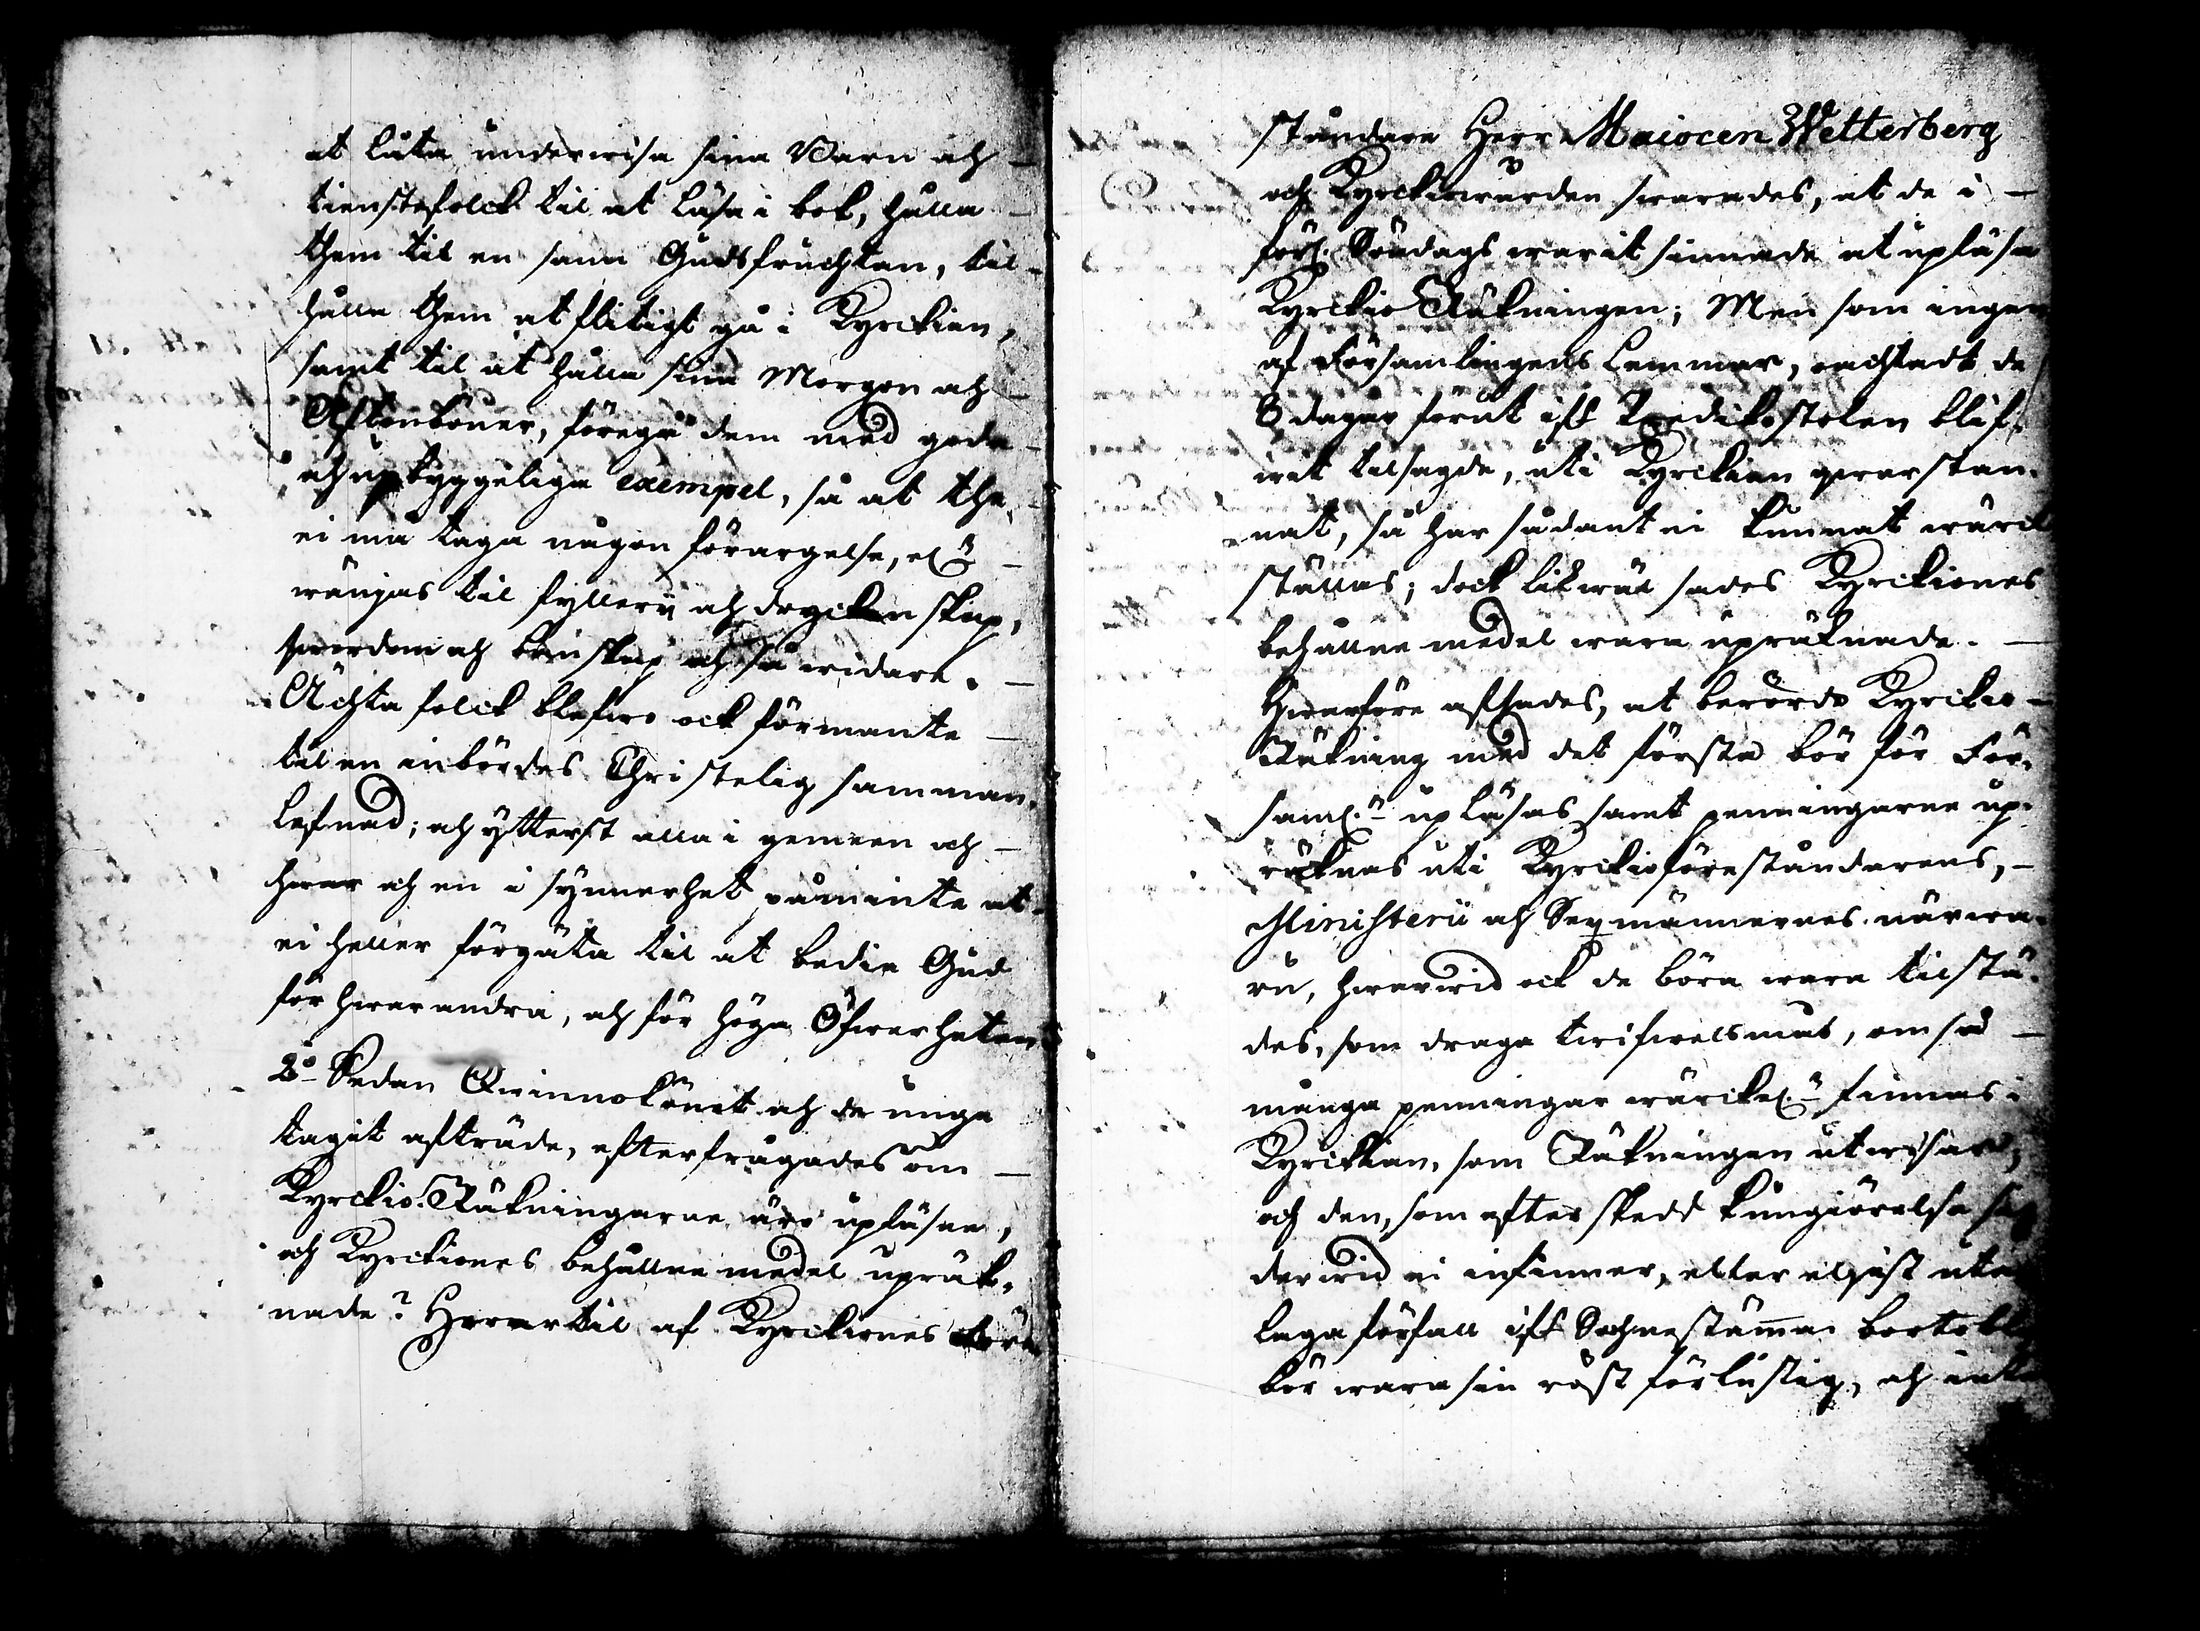 at låta underwisa sina Barn och
tienstefolck til at läsa i bok, hålla
them til en sann Gudsfruchtan, til-
hålla them at flitigt gå i Kyrckian,
samt til at hålla sina Morgon och
Aftonböner, föregå dem med goda
och upbyggeliga exempel, så at the
ei må taga någon förargelse, elr
wänjas til fyllerij och dryckenskap,
swordom och  och så widare.
Ächta folck blefwo ock förmante
til en inbördes Christelig samman-
lefnad; och ytterst alla i gemeen och
hwar och en i synnerhet påminte at
ei heller förgäta til at bedia Gud
för hwarandra, och för höga Öfwerheten
2o Sedan Qwinnolönet och de unga
tagit afträde, efterfrågades om
Kyrckio-Räkningarne äro upläsne,
och Kyrckiones behållne medel upräk-
nade? Hwartil af Kyrckiones före
ståndare Herr Maiocen Wetterberg
och Kyrckiowärden swarades, at de i
förl. Söndags warit sinnade at upläsa
Kyrckio Räkningen; Men som ingen
af Församlingens Lemmar, oachtadt de
8 dagar förut ifr Predikostolen blif-
wit tilsagde, uti Kyrckian qwarstan-
nat, så har sådant ei kunnat wärck
ställas; dock likwäl sades Kyrckiones
behållne medel wara upräknade.
Hwarföre afsades, at berörde Kyrckio-
Räkning med det första bör för För-
saml:n upläsas samt penningarne up-
räknas uti Kyrckioföreståndarens,
Ministerii och Sexmännernes närwa-
ru, hwarwid ock de böra wara tilstä-
des, som draga twifwelsmål, om så
många penningar wärckel:n finnas i
Kyrckian, som Räkningen utwisar,
och den, som efter skedd kungiörelse sig
derwid ei infinner, eller eljest utan
laga förfall ifr Sochnestämman 
bör wara sin röst förlustig, och inte